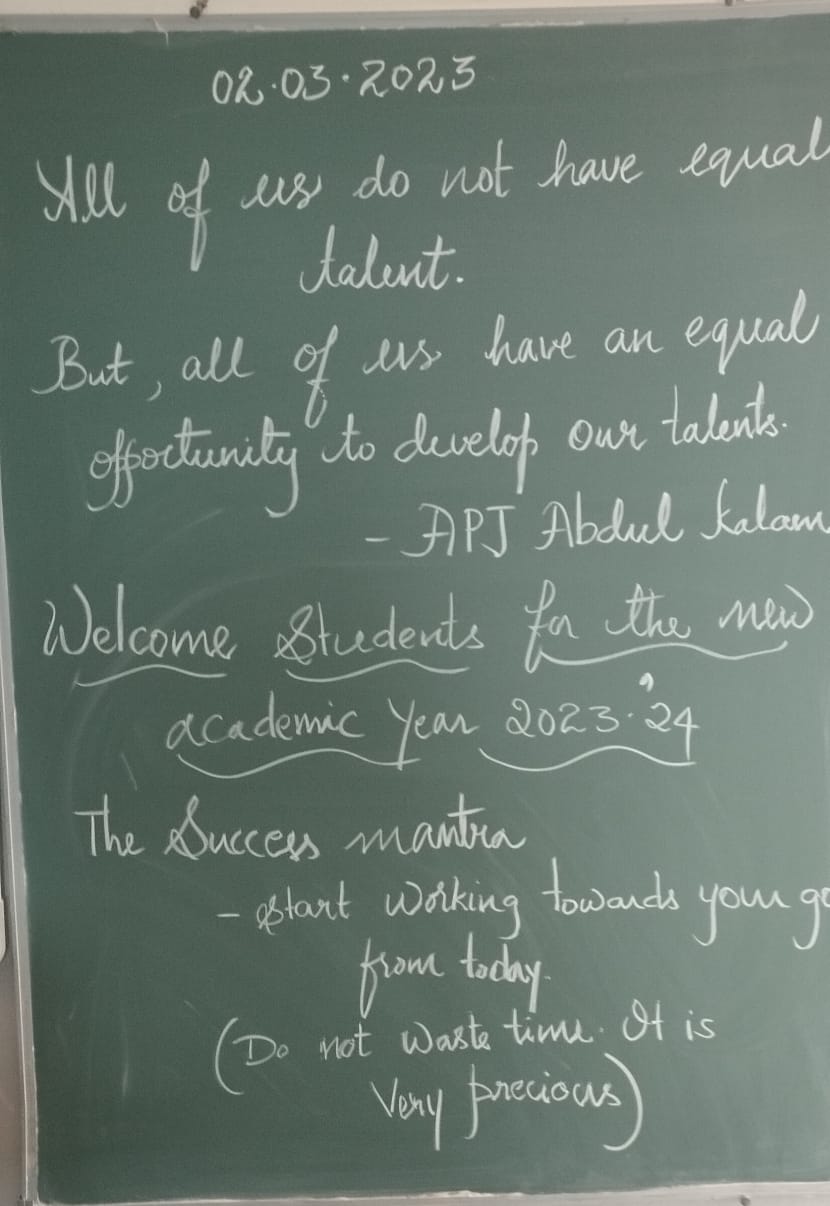 02.03.2023
All of us do not have equal
talent.
But, all of us have an equal
opportunity to develop our talents.
- APJ Abdul Kalam
Welcome Students for the new
academic year 2023-24
The Success mantra
- Start working towards your
from today.
(Do not waste time. It is
Very precious)